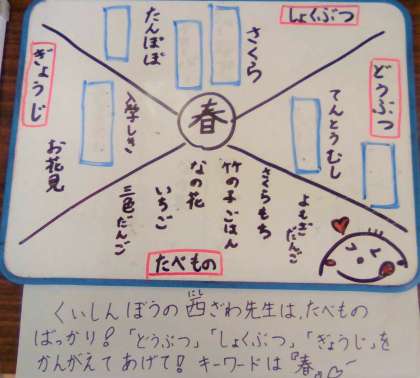 しょくぶつ
さくら
たんぽぽ
ぎょうじ
入学しき
お花見
春
どうぶつ
てんとうむし
たべもの
よもぎだんご
さくらもち
竹の子ごはん
なの花
いちご
三色だんご
くいしんぼうの西にしざわ先生は、たべもの
ばっかり!「どうぶつ」「しょくぶつ」「ぎょうじ」を
かんがえてあげて! キーワードは『春』♡